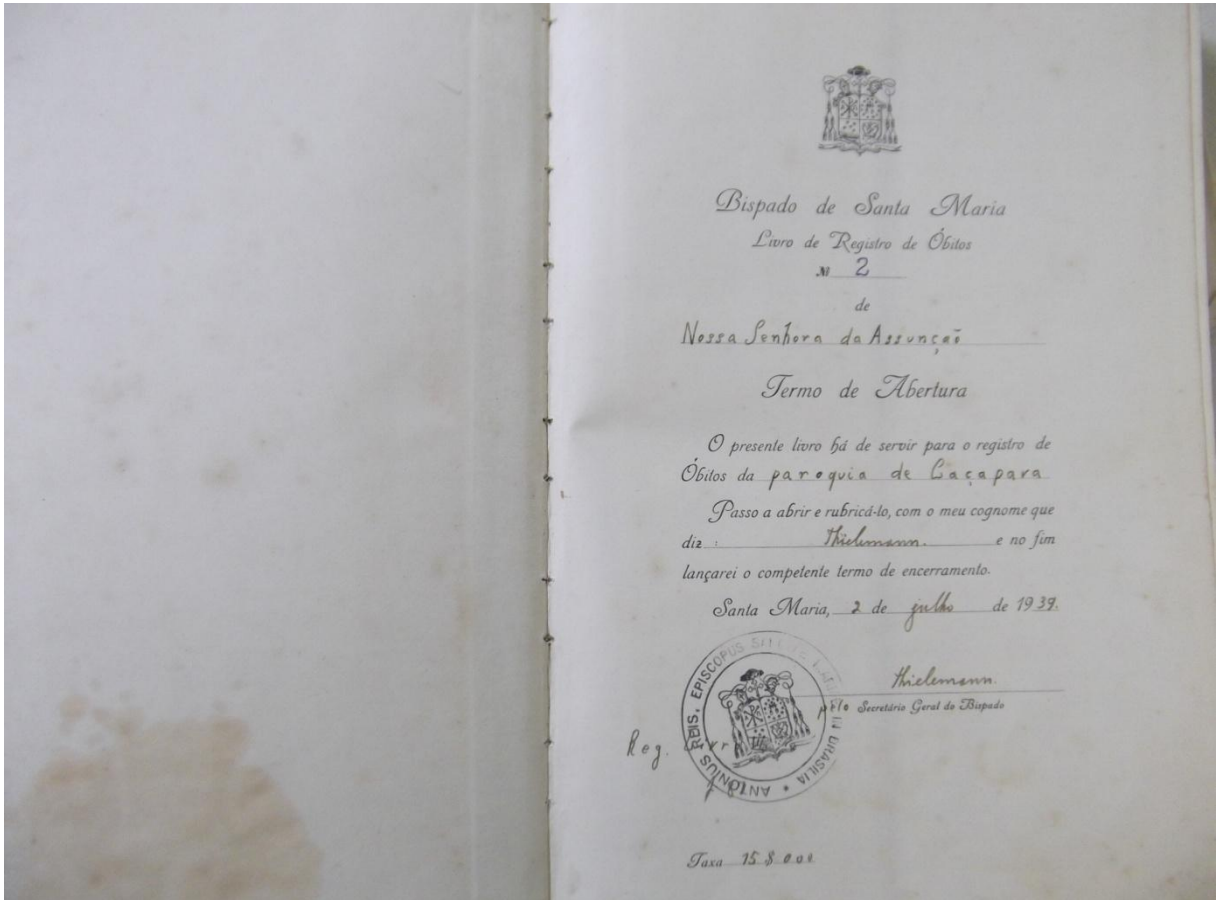 Bispado de Santa Maria
Livro de Registro de Óbitos
Nº 2
de
Nossa Senhora da Assunção
Termo de Abertura
O presente livro há de servir para o registro de
Óbitos da paroquia de Caçapava
Passo a abrir e rubricá-lo, com o meu cognome que
diz : Thielemann. e no fim
lançarei o competente termo de encerramento.
Santa Maria, 2 de julho de 1939.
ANTONIUS REIS, EPISCOPUS IN BRASILIA
Thielemann.
pelo Secretário Geral do Bispado
Reg.
Taxa 15$000